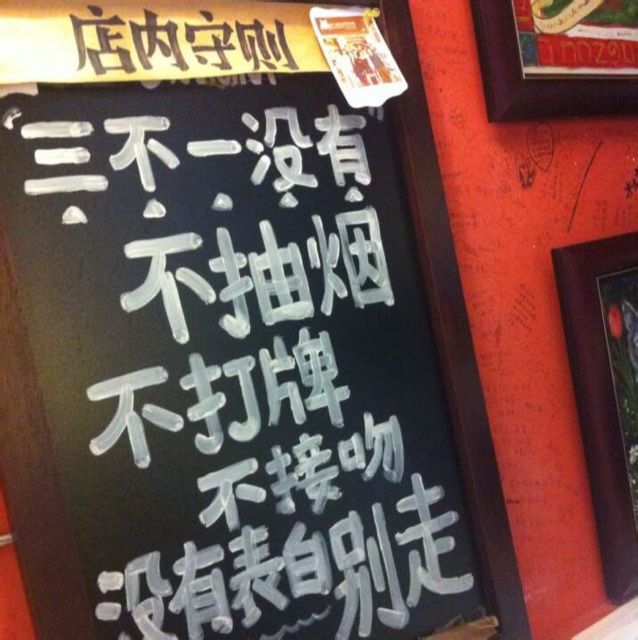 店内守则
"三不一没有"
不抽烟
不打牌
不接吻
没有表白别走